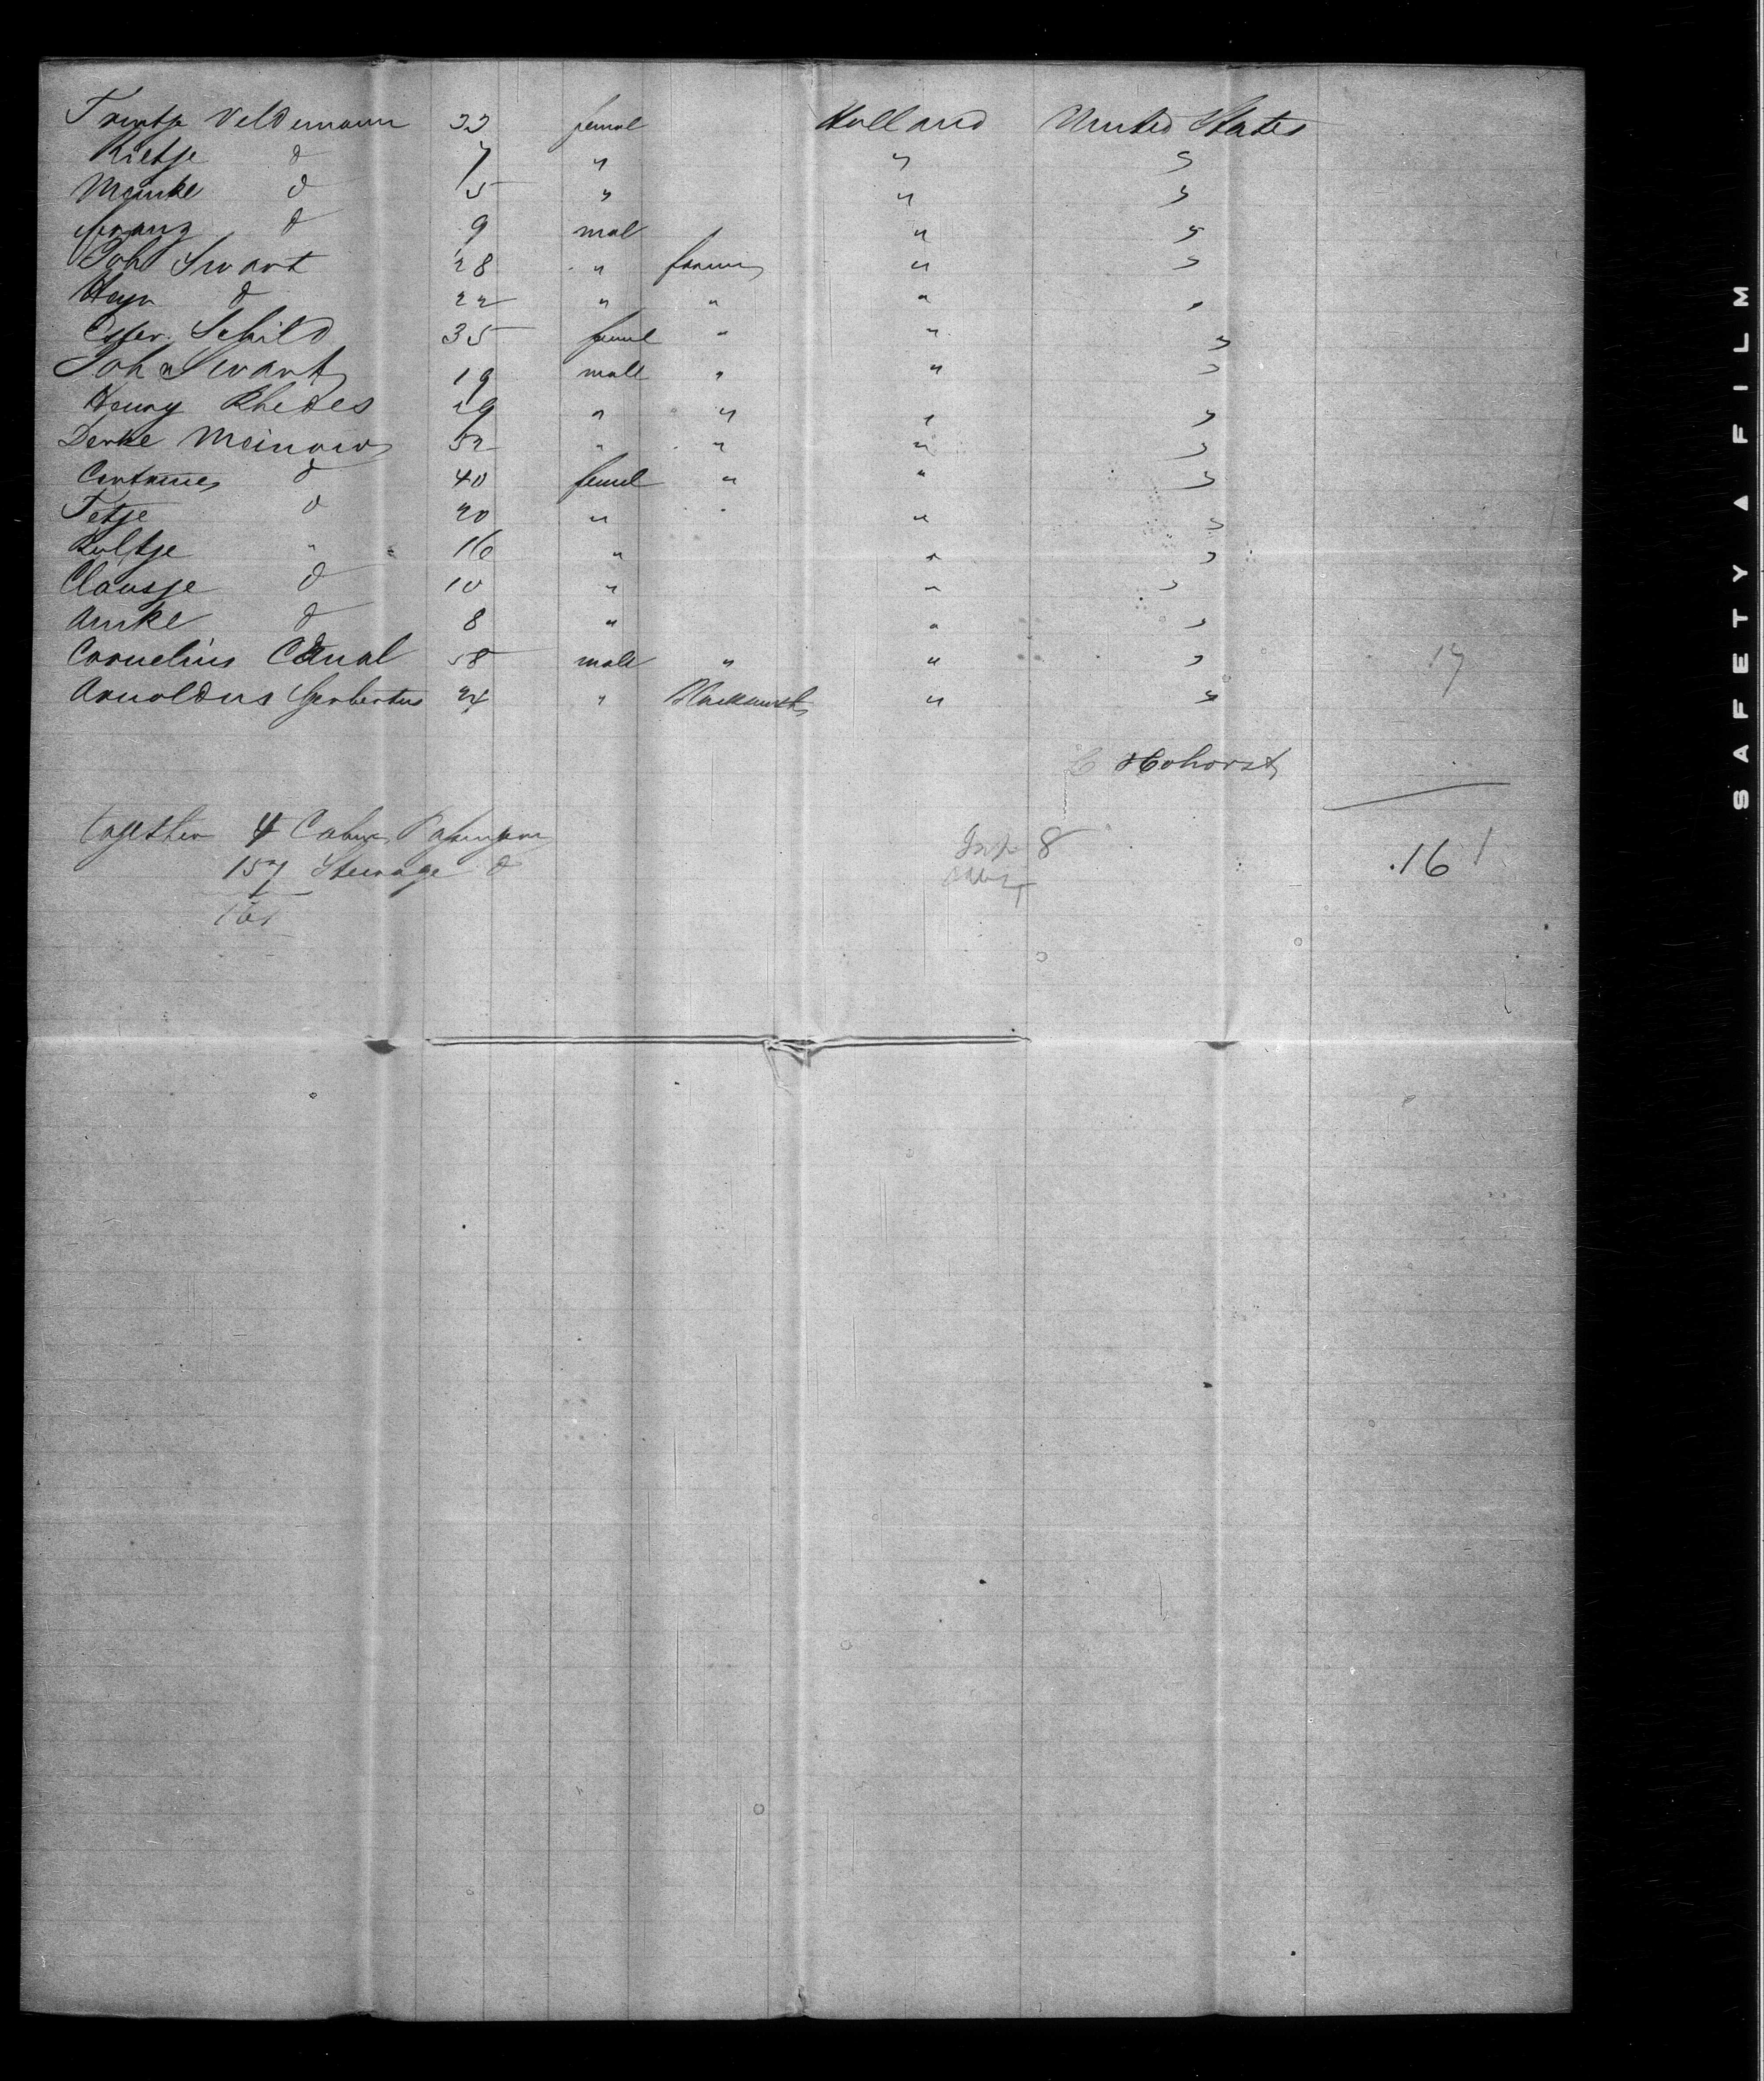 Trintje Veldemann 33 femal Holland United States
Rietje d 7 " " "
Meinke d 5 " " "
Franz d 9 mal " "
Joh Swart 28 " farmer " "
Heyn d 22 " " " "
Ester Schild 35 femal " " "
Joh Swart 19 male " " "
Henry Rhedes 29 " " " "
Derke Meinow 52 " " " "
d 40 femal " " "
Tetje d 20 " " "
Kultje " 16 " " "
Clausje d 10 " " "
Amke d 8 " " "
Cornelius Canal 58 male " " " 17
Arnoldus Gerbertus 24 " " "
C Hohorst
together 4 Cabin Passengers
157 Steerage d
161
Inf 8
161
SAFETY ▲ FILM